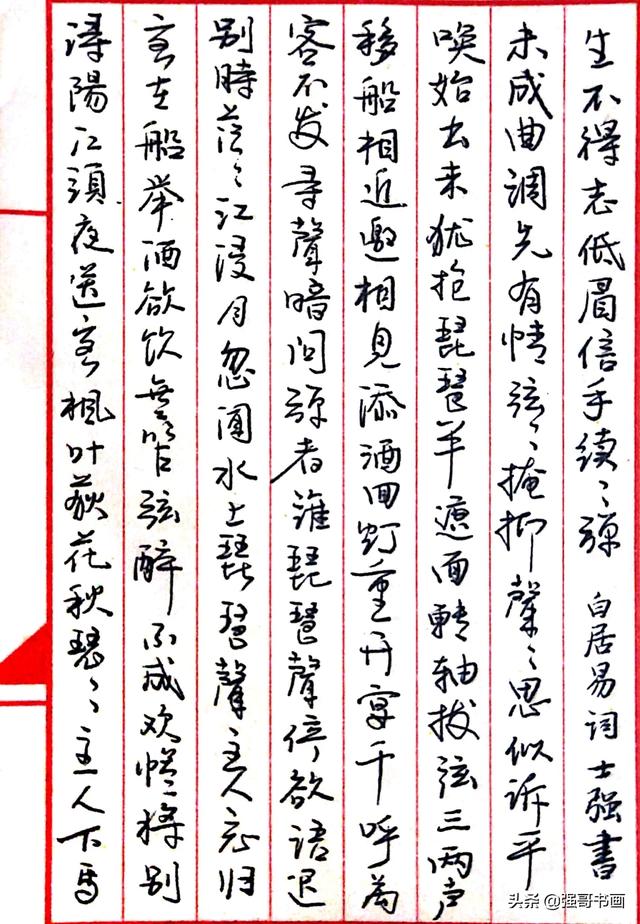 浔陽江頭夜送客枫叶荻花秋瑟々主人下馬
客在船举酒欲饮無管弦醉不成欢惨将别
别時茫々江浸月忽闻水上琵琶聲主人忘归
客不发寻聲暗问弹者谁琵琶聲停欲语迟
移船相近邀相见添酒回灯重开宴千呼萬
唤始出来犹抱琵琶半遮面轉轴拨弦三两声
未成曲调先有情弦々掩抑聲々思似诉平
生不得志低眉信手续々弹 白居易词士强书
头条 @强哥书画